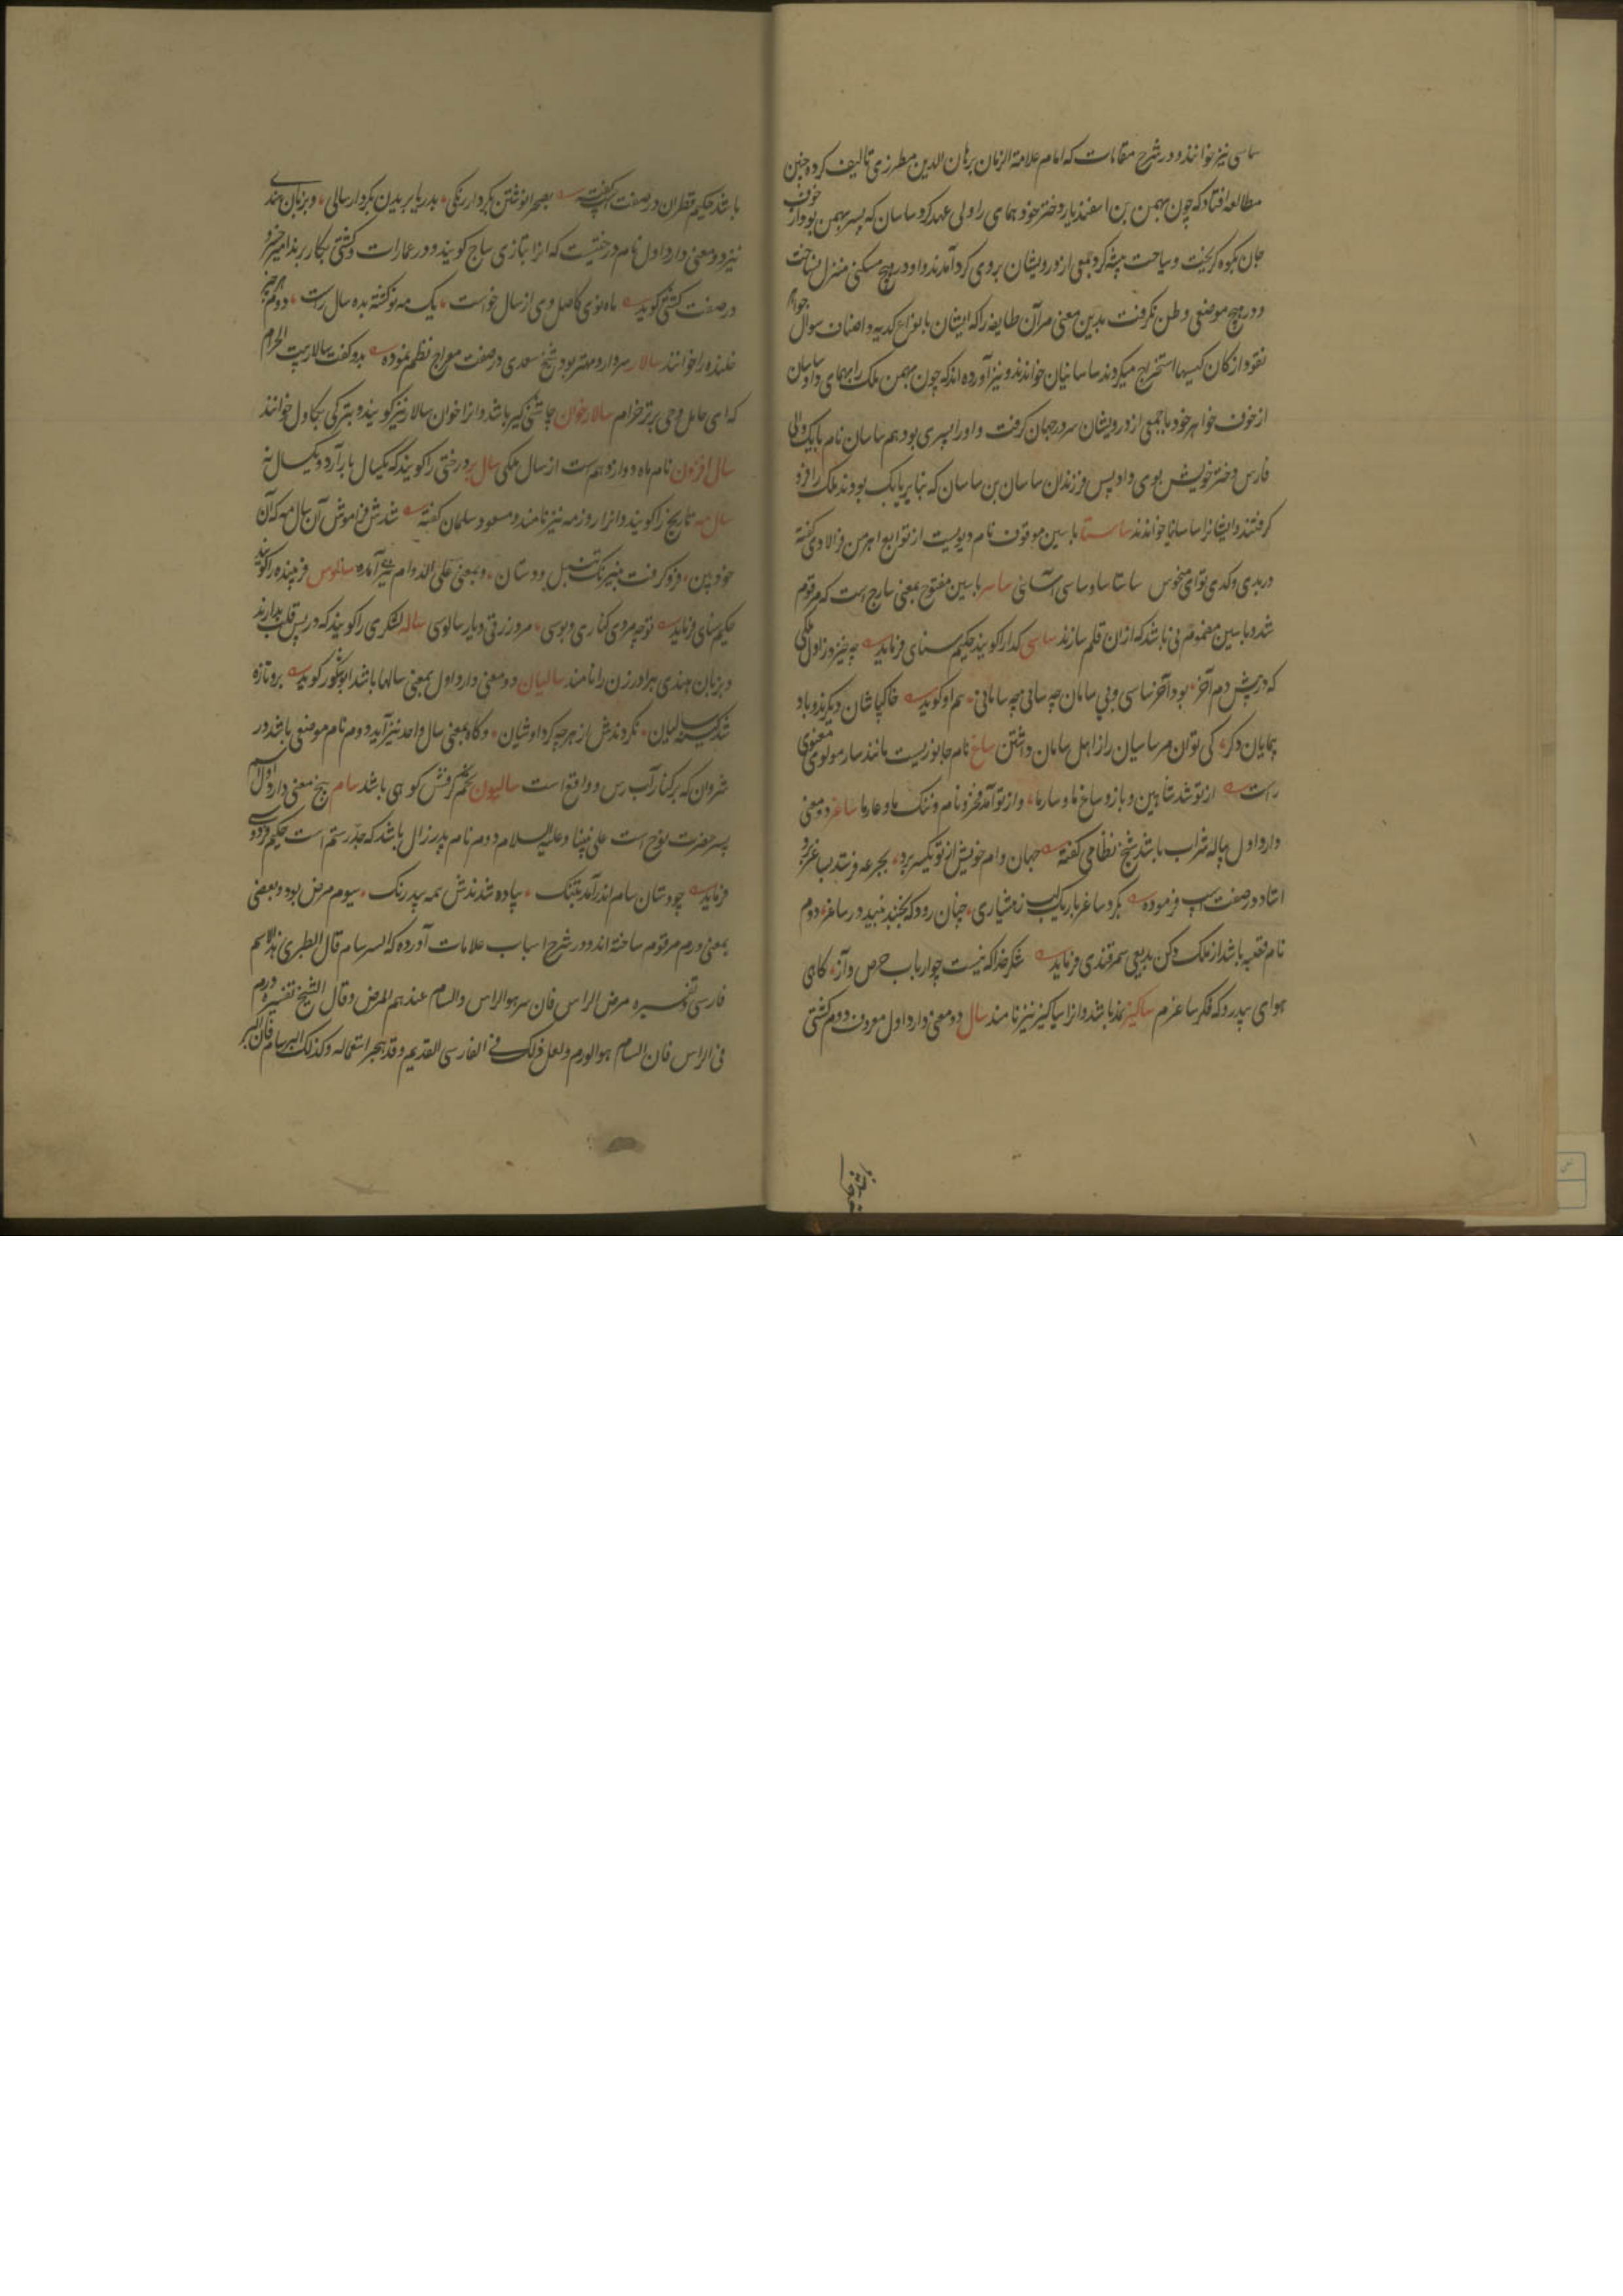 ساسی نیز خوانند و در شرح مقامات که امام علامة الزمان برهان الدین مطرزی تالیف کرده چنین
مطالعه افتاد که چون بهمن بن اسفندیار دختر خود همای را ولی عهد کرد ساسان که پسر بهمن بود از خوف
جان بکوه کریخت و سیاحت پیشه کرد جمعی از درویشان بر وی کرد آمدند و او در هیچ مسکنی منزل نساخت
و در هیچ موضعی وطن نکرفت بدین معنی مر آن طایفه را که ایشان بانواع کدیه و اصناف سوال جواهر
نقود از کان کیسها استخراج میکردند ساسانیان خواندند و نیز آورده اند که چون بهمن ملک را بهمای داد ساسان
از خوف خواهر خود با جمعی از درویشان سر در جهان کرفت و او را پسری بود هم ساسان نام بابک والی
فارس دختر خویش بوی داد پس فرزندان ساسان بن ساسان که بنایر بابک بودند ملک را فرو
کرفتند و ایشانرا ساسانیا خواندند ساستا با سین موقوف نام دیویست از توابع اهرمن فرالادی کفته
در بدی و کدی توای منحوس ساستا ساو ساسی آسانی ساسر با سین مفتوح بمعنی سارج است که مرقوم
شد و با سین مضموم نی باشد که از ان قلم سازند ساسی کدا را کویند حکیم سنای فرماید چه خیزد ز اول ملکی
که در پیش دم آخر بود آخر ساسی و بی سامان چه سانی چه سامانی هم او کوید خاکپاشان دیکرند و باد
پیمایان دکر کی توان مر ساسیان را ز اهل سامان داشتن ساغ نام جانوریست مانند سار مولوی معنوی
راست از تو شد شاهین و باز و ساغ ما و سار ما و از تو آمد فخر و نام و ننک ما و عار ما ساغر دو معنی
دارد اول پیاله شراب باشد شیخ نظامی کفته جهان وام خویش از تو یکسر برد بجرعه فرستد بساغر برد
استاد در صفت اسپ فرموده بکرد ساغر باریک لب ز هشیاری چنان رود که نجنبد نبید در ساغر دوم
نام قصبه باشد از ملک دکن بدیعی سمرقندی فرماید شکر خدا که نیست چو ارباب حرص و آز کاهی
هوای بیدر و که فکر ساغرم ساکیز نمد باشد و انرا سیاکیز نیز نامند سال دو معنی دارد اول معروف دوم کشتی
باشد حکیم
باشد حکیم قطران در صفت اسپ کفته بصحرا نوشتن بکردار رنکی بدریا بریدن بکردار سالی و بزبان هندی
نیز دو معنی دارد اول نام درختیست که انرا بتازی ساج کویند و در عمارات و کشتی بکار برند امیر خسرو
در صفت کشتی کوید ماه نوی کاصل وی از سال خواست یک مه نو کشته بده سال راست دوم هر چیز
خلنده را خوانند سالار سردار و مهتر بود شیخ سعدی در صفت معراج نظم نموده بدو کفت سالار بیت الحرام
که ای حامل وحی برتر خرام سالار خوان چاشنی کیر باشد و انرا خوان سالار نیز کویند و بترکی بکاول خوانند
سال افزون نام ماه دوازدهم است از سال ملکی سال بر درختی را کویند که یکسال بار آرد و یکسال نه
سال مه تاریخ را کویند و انرا روزمه نیز نامند و مسعود سلمان کفته شدش فراموش آن سال مه که آن
خود بین فرو کرفت بنیرنک و تنبل و دستان و بمعنی علی الدوام نیز آمده سالوس فریبنده را کویند
حکیم سنای فرماید تو چه مردی کناری و بوسی مرد زرقی و یار سالوسی ساله لشکری را کویند که در پس قلب بدارند
و بزبان هندی برادر زن را نامند سالیان دو معنی دارد اول بمعنی سالها باشد ابو شکور کوید برو تازه
شد کینه سالیان نکردندش از هر چه کرد او شیان و کاه بمعنی سال واحد نیز آید دوم نام موضعی باشد در
شروان که بر کنار آب رس واقع است سالیون تخم کرفش کوهی باشد سام پنج معنی دارد اول اسم
پسر حضرت نوح است علی نبینا و علیه السلام دوم نام پدر زال باشد که جد رستم است حکیم فردوسی
فرماید چو دستان سام اندر آمد بتنک پیاده شدندش همه بیدرنک سیوم مرض بود و بعضی
بمعنی ورم مرقوم ساخته اند و در شرح اسباب علامات آورده که السرسام قال الطبری هذا الاسم
فارسی و تفسیره مرض الراس فان سر هو الراس و السام عندهم المرض و قال الشیخ تفسیره ورم
فی الراس فان السام هو الورم و لعل ذلک فی الفارسی القدیم و قد هجر استعماله و کذلک البرسام فان البر